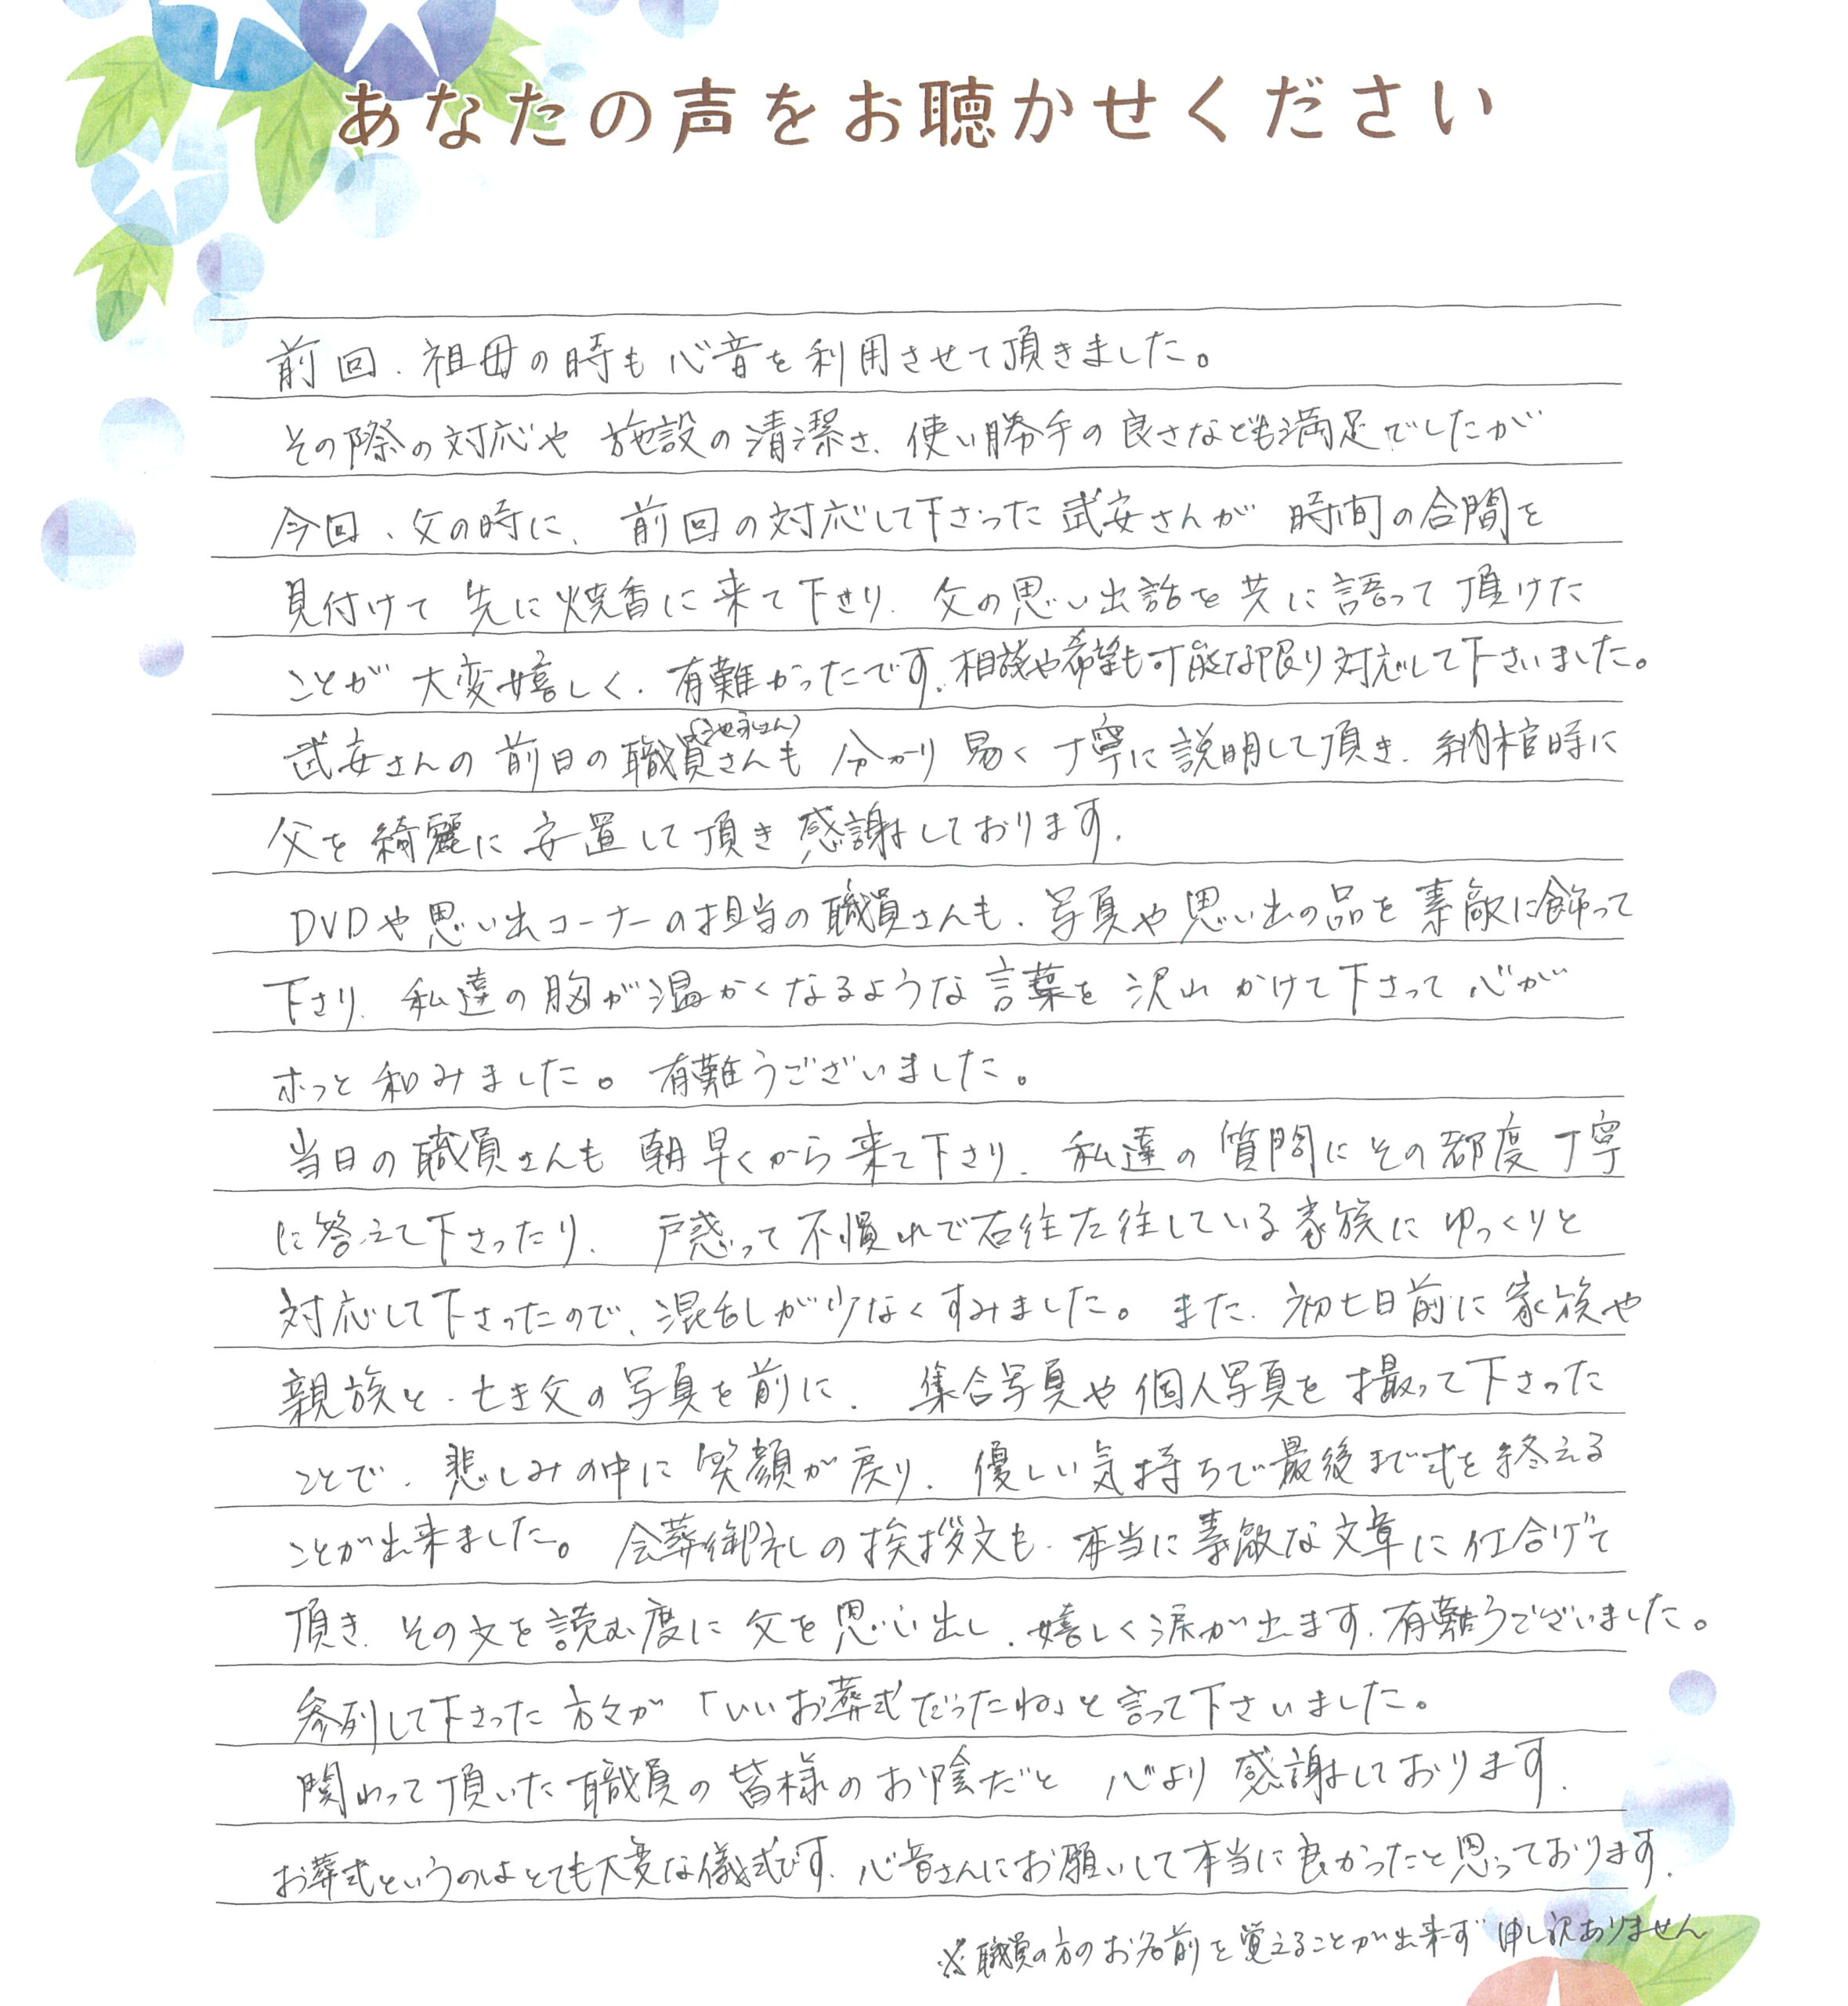 あなたの声をお聴かせください
前回、祖母の時も心音を利用させて頂きました。
その際の対応や施設の清潔さ、使い勝手の良さなども満足でしたが
今回、父の時に、前回の対応して下さった武安さんが時間の合間を
見付けて先に焼香に来て下さり、父の思い出話を共に語って頂けた
ことが大変嬉しく、有難かったです。相談や希望も可能な限り対応して下さいました。
(池永さん)
武安さんの前日の職員さんも分かり易く丁寧に説明して頂き、納棺時に
父を綺麗に安置して頂き感謝しております。
DVDや思い出コーナーの担当の職員さんも、写真や思い出の品を素敵に飾って
下さり、私達の胸が温かくなるような言葉を沢山かけて下さって心が
ホッと和みました。有難うございました。
当日の職員さんも朝早くから来て下さり、私達の質問にその都度丁寧
に答えて下さったり、戸惑って不慣れで右往左往している家族にゆっくりと
対応して下さったので、混乱しが少なくすみました。また、初七日前に家族や
親族と、亡き父の写真を前に、集合写真や個人写真を撮って下さった
ことで、悲しみの中に笑顔が戻り、優しい気持ちで最後まで式を終える
ことが出来ました。会葬御礼の挨拶文も、本当に素敵な文章に仕合げて
頂き、その文を読む度に父を思い出し、嬉しく涙が出ます。有難うございました。
参列して下さった方々が「いいお葬式だったね」と言って下さいました。
関わって頂いた職員の皆様のお陰だと心より感謝しております。
お葬式というのはとても大変な儀式です。心音さんにお願いして本当に良かったと思っております。
※職員の方のお名前を覚えることが出来ず申し訳ありません